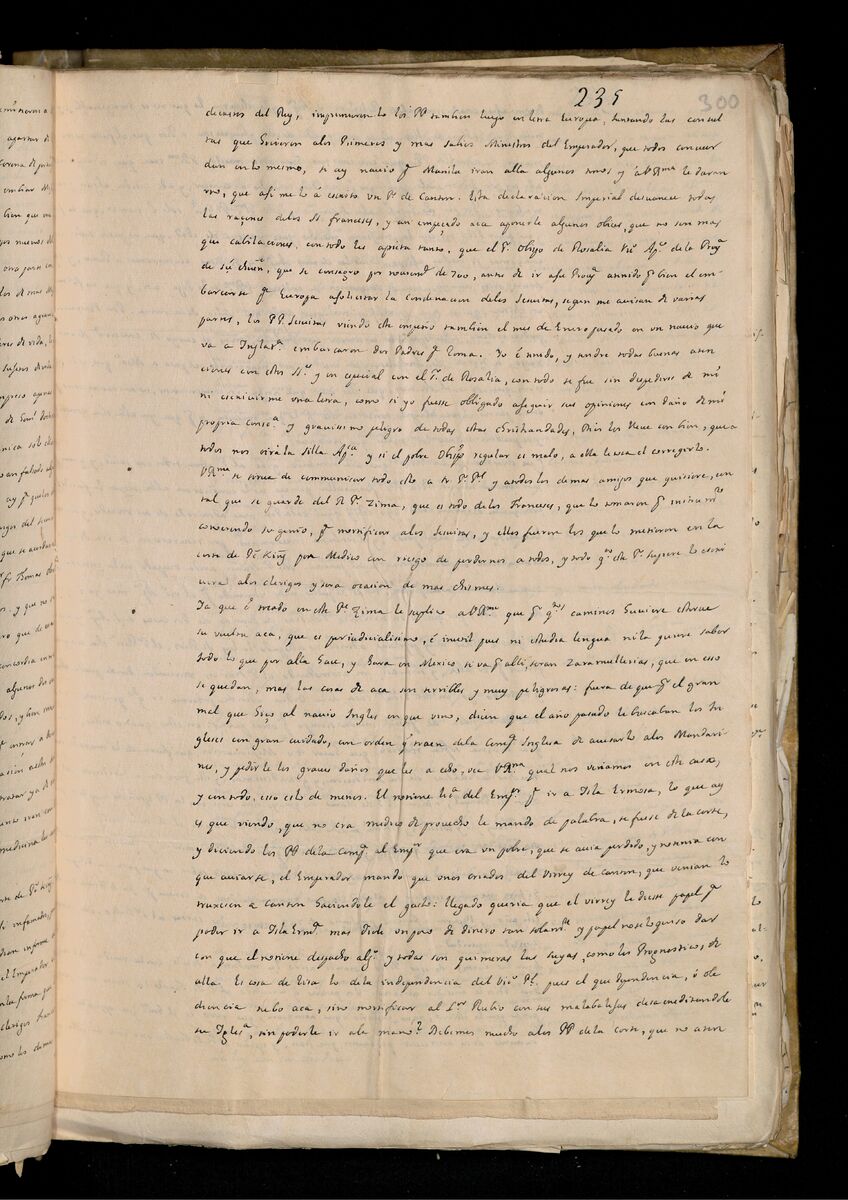 235
300
decretos del Rey, imprimieronlo los PP tambien luego en letra Europea, juntando las consul
tas que hicieron a los Primeros y mas sabios Ministros del Emperador, que todos concuer
dan en lo mesmo, si ay navio pª Manila iran alla algunos tomos y a VRma le daran
uno, que assi me lo à escrito un Pe de Canton. Esta declaracion Imperial desvanece todas
las razones delos SS franceses, y an empeçado aca a ponerle algunos obices, que no son mas
que cabilaciones, con todo les aprieta tanto, que el Sr Obispo de Rosalia Vic Apo de la Provª
de Su chuen, que se consagro por noviembre de 700, antes de ir a su Provª a tenido pr bien el em
barcarse pª Europa a solicitar la condenacion delos Jesuitas, segun me avisan de varias
partes, los PP. Jesuitas viendo este empeño tambien el mes de Enero pasado en un navio que
va a Inglatrª embarcaron dos Padres pª Roma. Yo è usado, y usare todas buenas aten
ciones con estos SSres y en especial con el Sr de Rosalia, con todo se fue sin despedirse de mi
ni escrivirme una letra, como si yo fuesse obligado a seguir sus opiniones con daño de mi
propria conscª y gravissimo peligro de todas estas christiandades, Dios los lleve con bien, que a
todos nos oirá la Silla Apca y si el pobre Obispo regular es malo, a ella le toca el corregirlo.
VRma se sirva de communicar todo esto a N. Pe Pl y a todos los demas amigos que quisiere, con
tal que se guarde del R Pe Zima, que es todo delos Franceses, que lo tomaron pr instrumto
conociendo su genio, pª mortificar a los Jesuitas, y ellos fueron los que lo metieron en la
corte de Pe King por Medico con riesgo de perdernos a todos, y todo qto este Pe supiere lo escri
virà a los clerigos y sera ocasion de mas chismes.
Ya que è tocado en este Pe Zima le suplico a VRma que pr qtos caminos huviere estorve
su vuelta aca, que es perjudicialissimo, è inutil pues ni estudia lengua ni la quiere saber
todo lo que por alla hace, y hara en Mexico, si va pr alli, seran zaramullerias, que en esso
se quedan, mas las cosas de aca son terribles y muy peligrosas: fuera de que pr el gran
mal que hiço al navio Ingles en que vino, dicen que el año pasado le buscaban los In
gleses con gran cuidado, con orden q traen dela Compª Inglesa de acusarlo a los Mandari
nes, y pedirle los graves daños que les a echo, vea VRma qual nos veriamos en este caso,
y con todo esso es lo de menos. El no tiene licª del Empor pª ir a Isla Ermosa, lo que ay
es que viendo, que no era medico de provecho le mando de palabra, se fuesse de la corte,
y diciendo los PP de la Compª al Empor que era un pobre, que se avia perdido, y no tenia con
que aviarse, el Emperador mando que unos criados del Virrey de Canton, que venian lo
truxesen a Canton haciendole el gasto: llegado queria que el virrey le diesse papel pª
poder ir a Isla Ermª mas diole un poco de dinero tan solamte y papel no se lo quiso dar
con que el no tiene despacho algº y todas son quimeras las suyas, como los Prognosticos, de
alla. Es cosa de risa lo de la independencia del Vico Pl. pues el que dependencia, ò obe
diencia tubo aca, sino mortificar al Pe Rubio con sus matabalejas desacreditandole
su Iglesª, sin poderle ir a la mano? Debemos mucho a los PP de la corte, que no aten